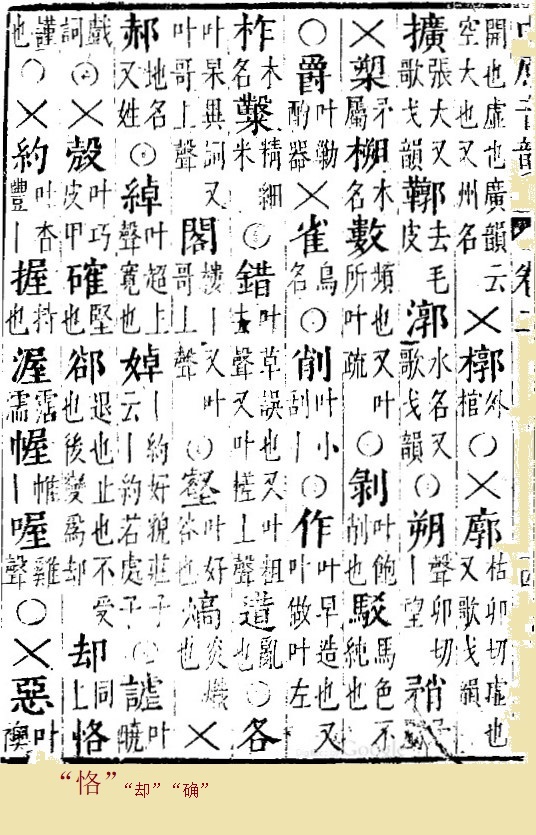 開也虛也廣韻云空大也又州名╳槨外棺○╳廓枯卯切虛也又歌戈切韻
擴張大又歌戈韻鞹去毛皮漷水名又歌戈韻⊙朔聲卯切丨望矟
╳槊矛屬槊木名數頻也又叶所叶疏○剝叶飽削也駁馬色不純也
○爵叶勦酌器╳雀鳥名○削叶小刮丨⊙作叶早造也又叶做叶左
柞木名糳精細米⊙錯叶草誤也又叶粗去聲又叶搓上聲道亂也○各
叶杲異詞又叶哥上聲閣樓丨又叶哥上聲⊙壑叶好谷也熇炎熾也╳
郝地名又姓⊙綽叶超上聲寬也婥丨約好貌莊子云丨約若處子⊙謔叶曉
戲詞⊙╳殼叶巧皮甲確堅也郤退也止也不受也後變爲却却同上恪
謹也○╳約叶杳豐丨握持也渥霑濡幄帷丨喔雞聲○╳惡叶襖
“恪”“却”“确”